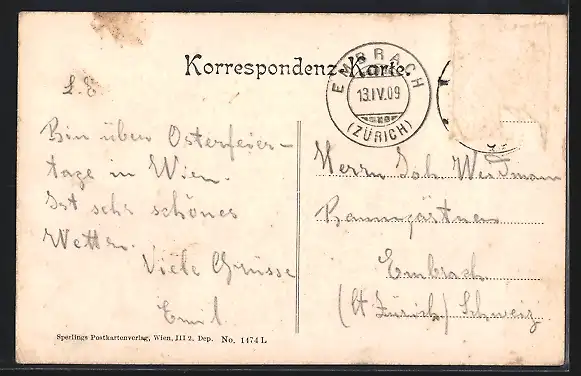 Korrespondenz-Karte.
EMBRACH
13.IV.09
(ZÜRICH)
L. E.
Bin über Osterfeier-
tage in Wien.
Ist sehr schönes
Wetter.
Viele Grüsse
Emil
Herrn Joh. Weidmann
Baumgärtner
Embrach
(Ct Zürich) Schweiz
Sperlings Postkartenverlag, Wien, III 2. Dep. No. 1474 L